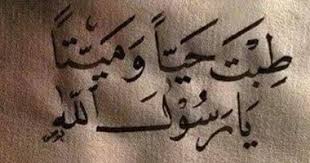 طِبْتَ حَيًّا وَمَيِّتًا
يَا رَسُوْلَ اللّٰهِ